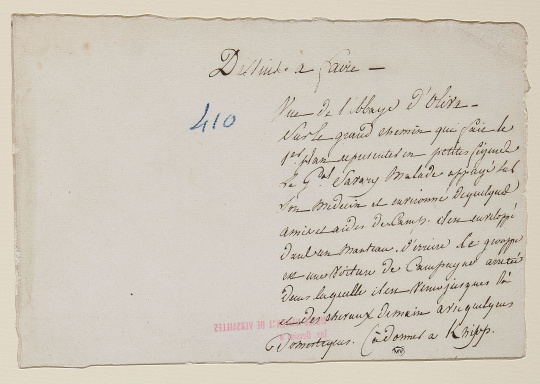 Dessins à faire —
410
Vue de l'Abbaye d'Oliva —
Sur le grand chemin qui fait le
1er plan representer en petites figures
Le Gal Savary Malade appuyé sur
son Medecin et environné de quelques
amis et aides de Camp. il est enveloppé
dans un Manteau. derriere le grouppe
est une Voiture de Campagne arretée
dans laquelle il est venu jusques là
et des chevaux de main avec quelques
Domestiques. à donner a Knipp.
DE VERSAILLES
MV